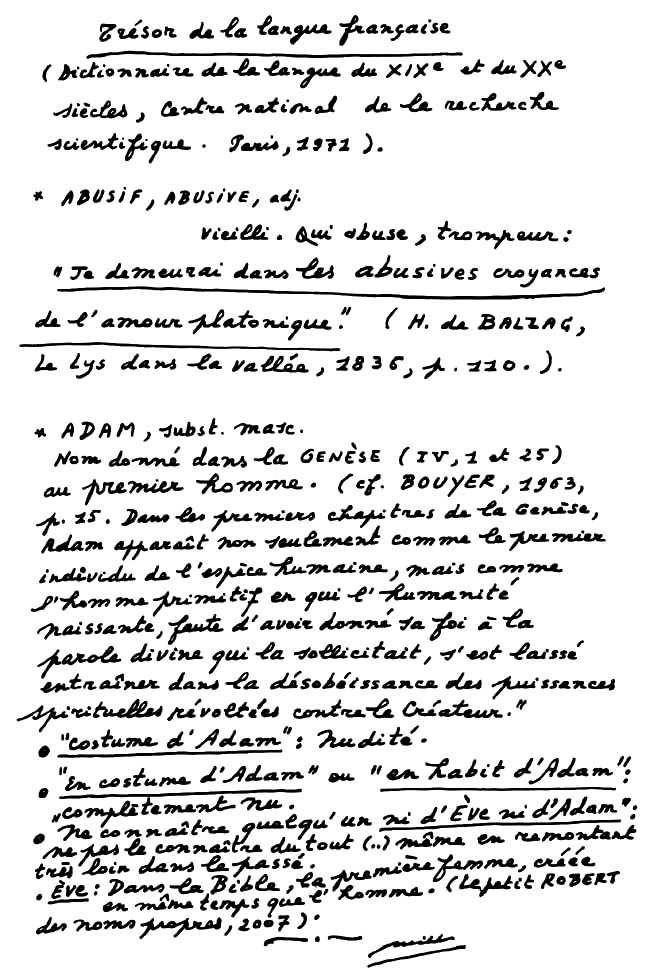 Trésor de la langue française
(Dictionnaire de la langue du XIXe et du XXe
siècles, Centre national de la recherche
scientifique. Paris, 1971).
* ABUSIF, ABUSIVE, adj.
Vieilli. Qui abuse, trompeur:
"Je demeurai dans les abusives croyances
de l'amour platonique." (H. de BALZAC,
Le Lys dans la vallée, 1836, p. 110.).
* ADAM, subst. masc.
Nom donné dans la GENÈSE (IV, 1 et 25)
au premier homme. (cf. BOUYER, 1963,
p. 15. Dans les premiers chapitres de la Genèse,
Adam apparaît non seulement comme le premier
individu de l'espèce humaine, mais comme
l'homme primitif en qui l'humanité
naissante, faute d'avoir donné sa foi à la
parole divine qui la sollicitait, s'est laissé
entraîner dans la désobéissance des puissances
spirituelles révoltées contre le Créateur."
• "costume d'Adam": nudité.
• "En costume d'Adam" ou "en habit d'Adam":
"complètement nu.
• Ne connaître quelqu'un ni d'Ève ni d'Adam":
ne pas le connaître du tout (..) même en remontant
très loin dans le passé.
. Ève: Dans la Bible, la première femme, créée
en même temps que l'homme. (Le petit ROBERT
des noms propres, 2007).